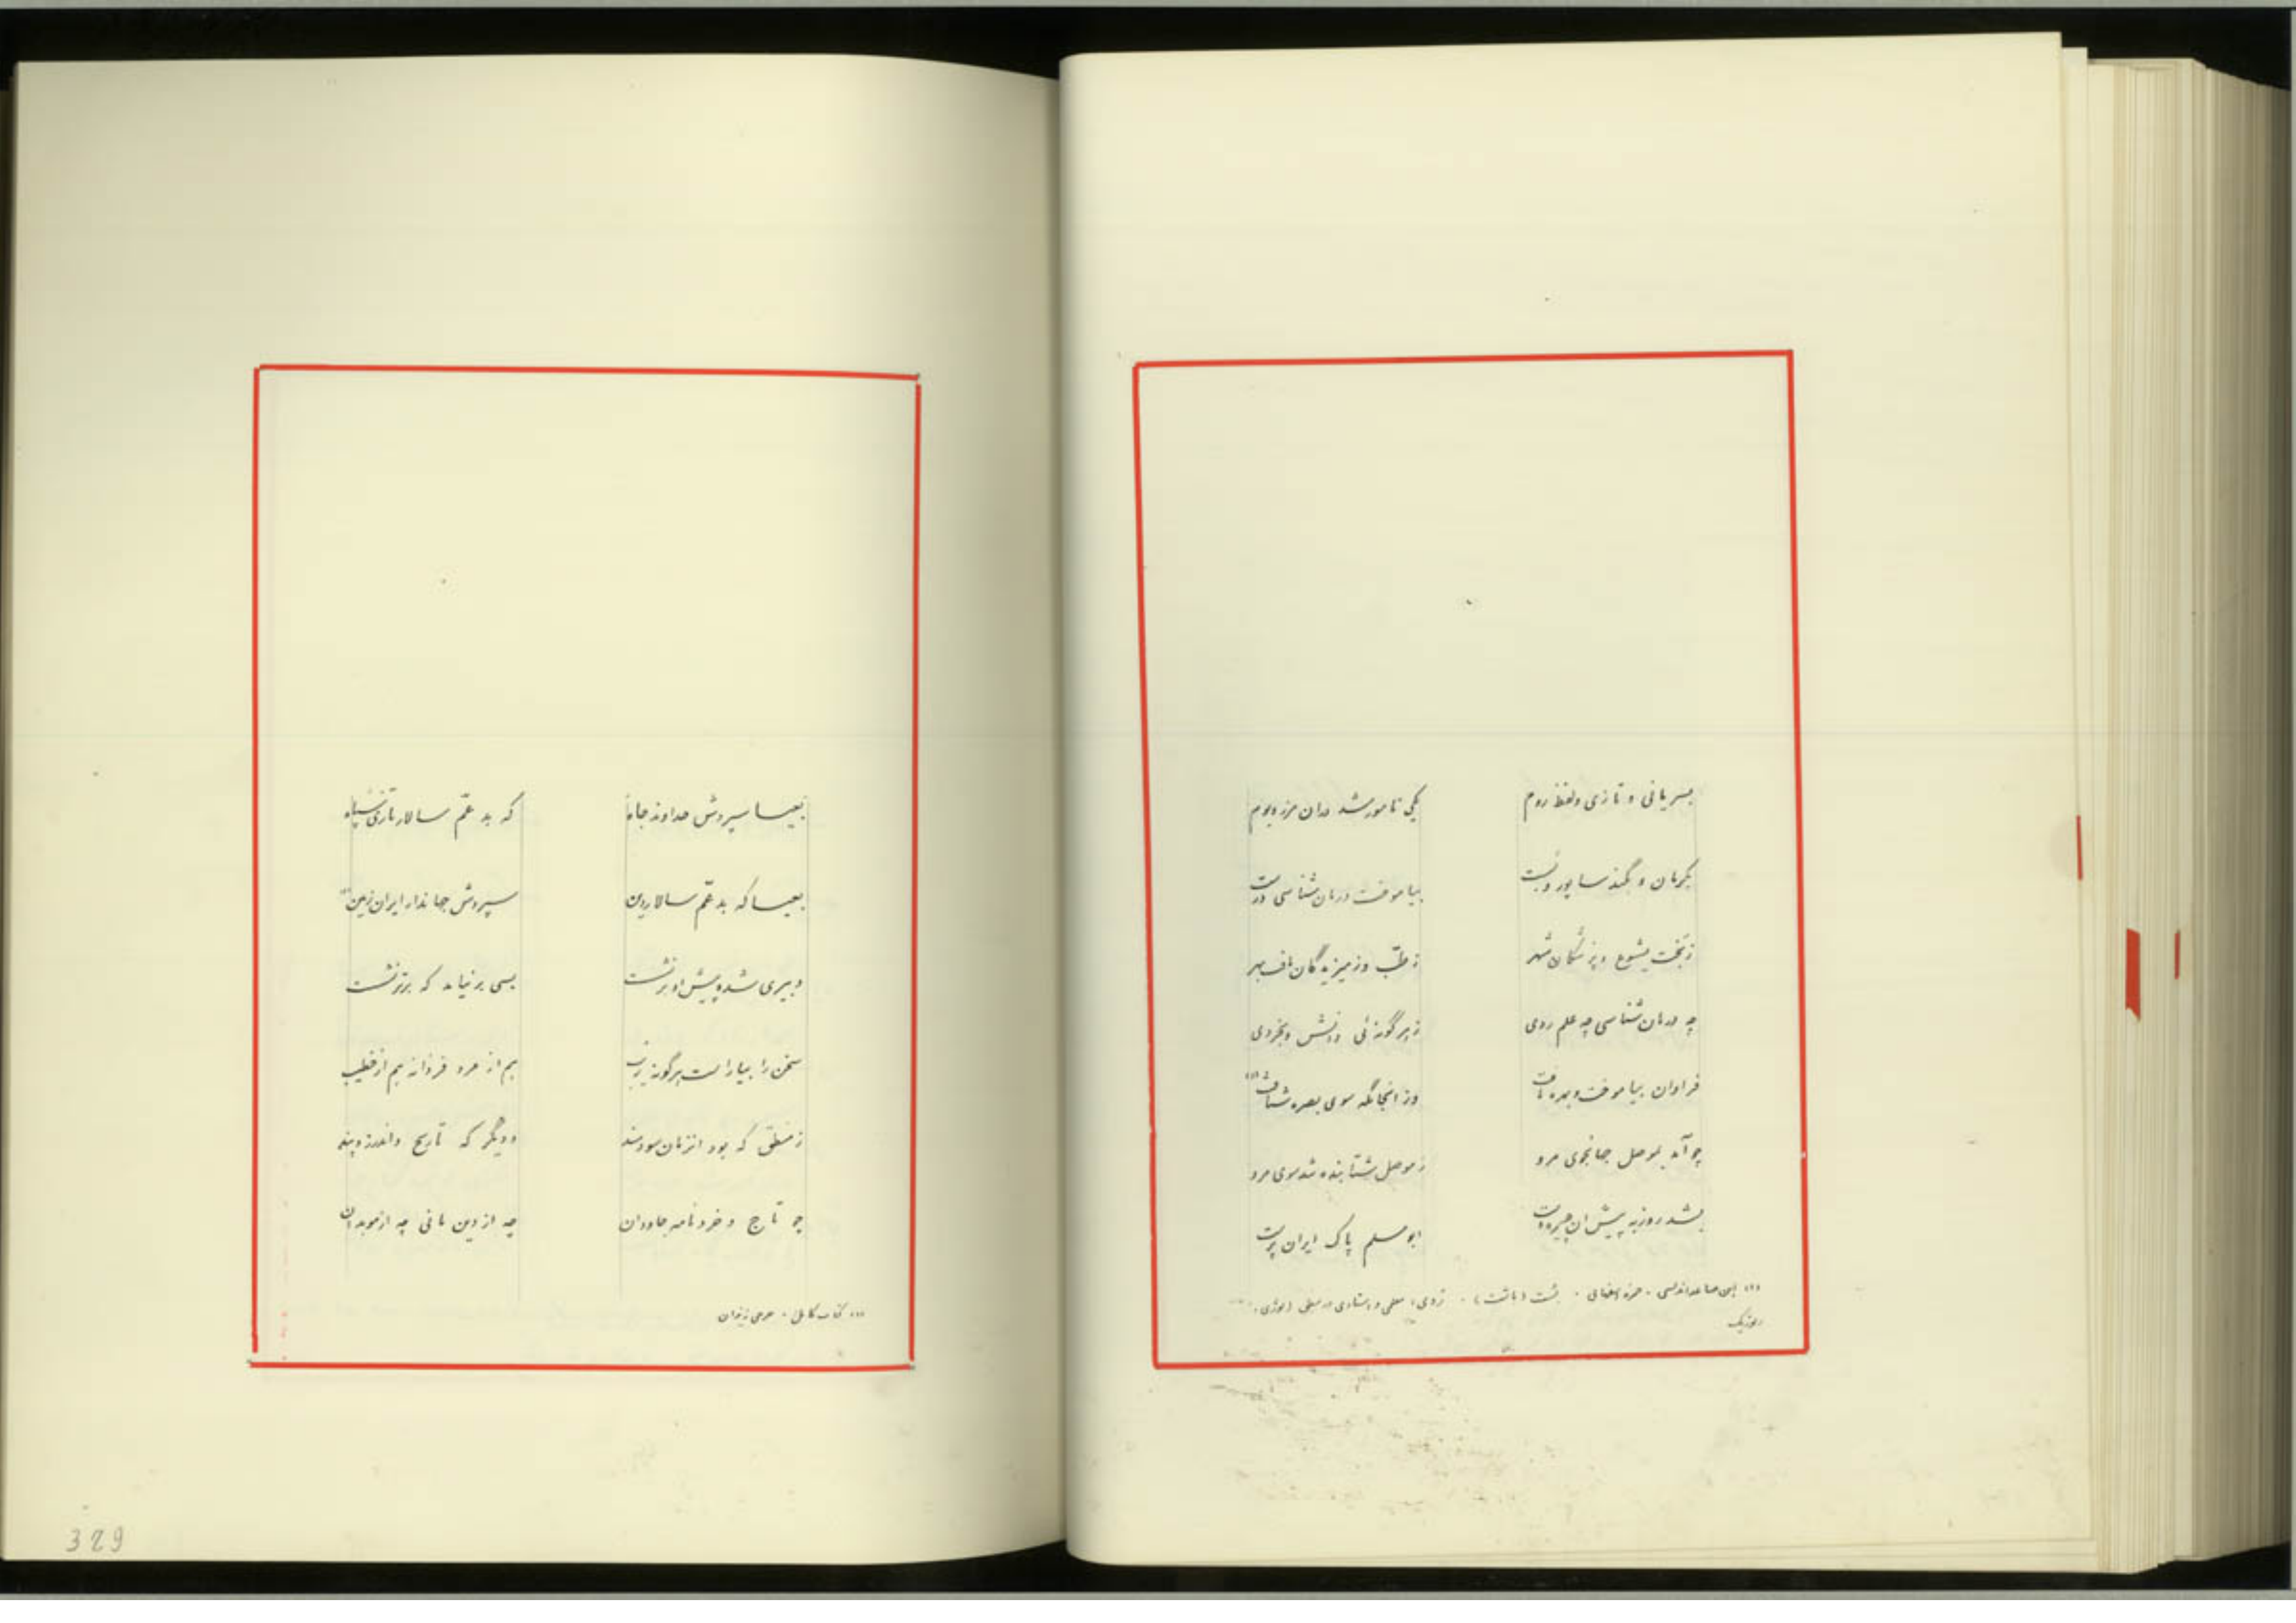 بسریانی و تازی و لفظ روم یکی نامور شد بدان مرز و بوم
بکرمان و گندساپور و بست بیاموخت درمان شناسی درست
ز بخت یشوع و پزشکان شهر ز طب وز میزیدگان یافت بهر
چه درمان شناسی چه علم روی ز هر گونه‌ئی دانش و بخردی
فراوان بیاموخت و بهره یافت وز انجایگه سوی بصره شتافت (۱)
چو آمد بموصل جهانجوی مرد ز موصل شتابنده شد سوی مرو
بشد روزبه پیش ان چیره دست ابو مسلم پاک ایران پرست
(۱) ابن صاعد اندلسی - حمزه اصفهانی
بعیسا سپردش خداوند جاه که بد عمّ سالار تازی سپاه
بعیسا که بد عمّ سالار دین سپردش جهاندار ایران زمین (۱)
دبیری شد و پیش او برنشست بسی بر نیامد که برتر نشست
سخن را بیاراست هر گونه زیب هم از مرد فرزانه هم از خطیب
ز منطق که بود انزمان سودمند و دیگر که تاریخ و اندرز و پند
چو تاج و خرد نامه جاودان چه از دین مانی چه از موبدان
(۱) کتاب کامل - جرجی زیدان
329